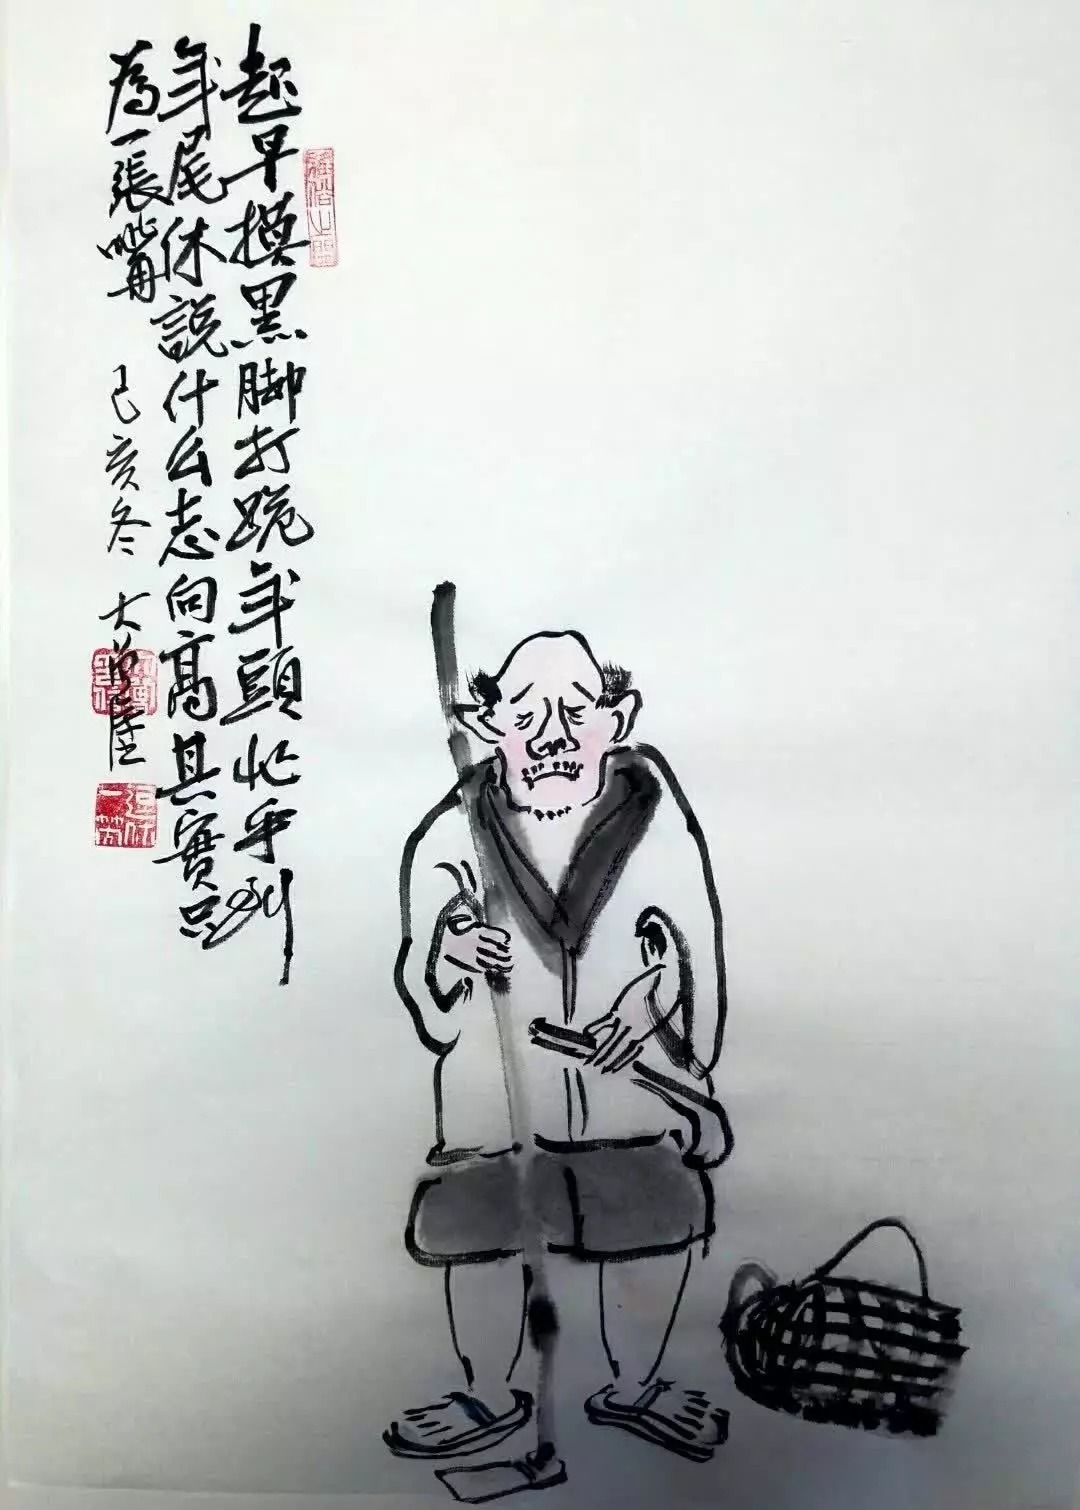 起早摸黑脚打跪年頭忙乎到
年尾休説什么志向高其實只
為一張嘴 己亥冬 大